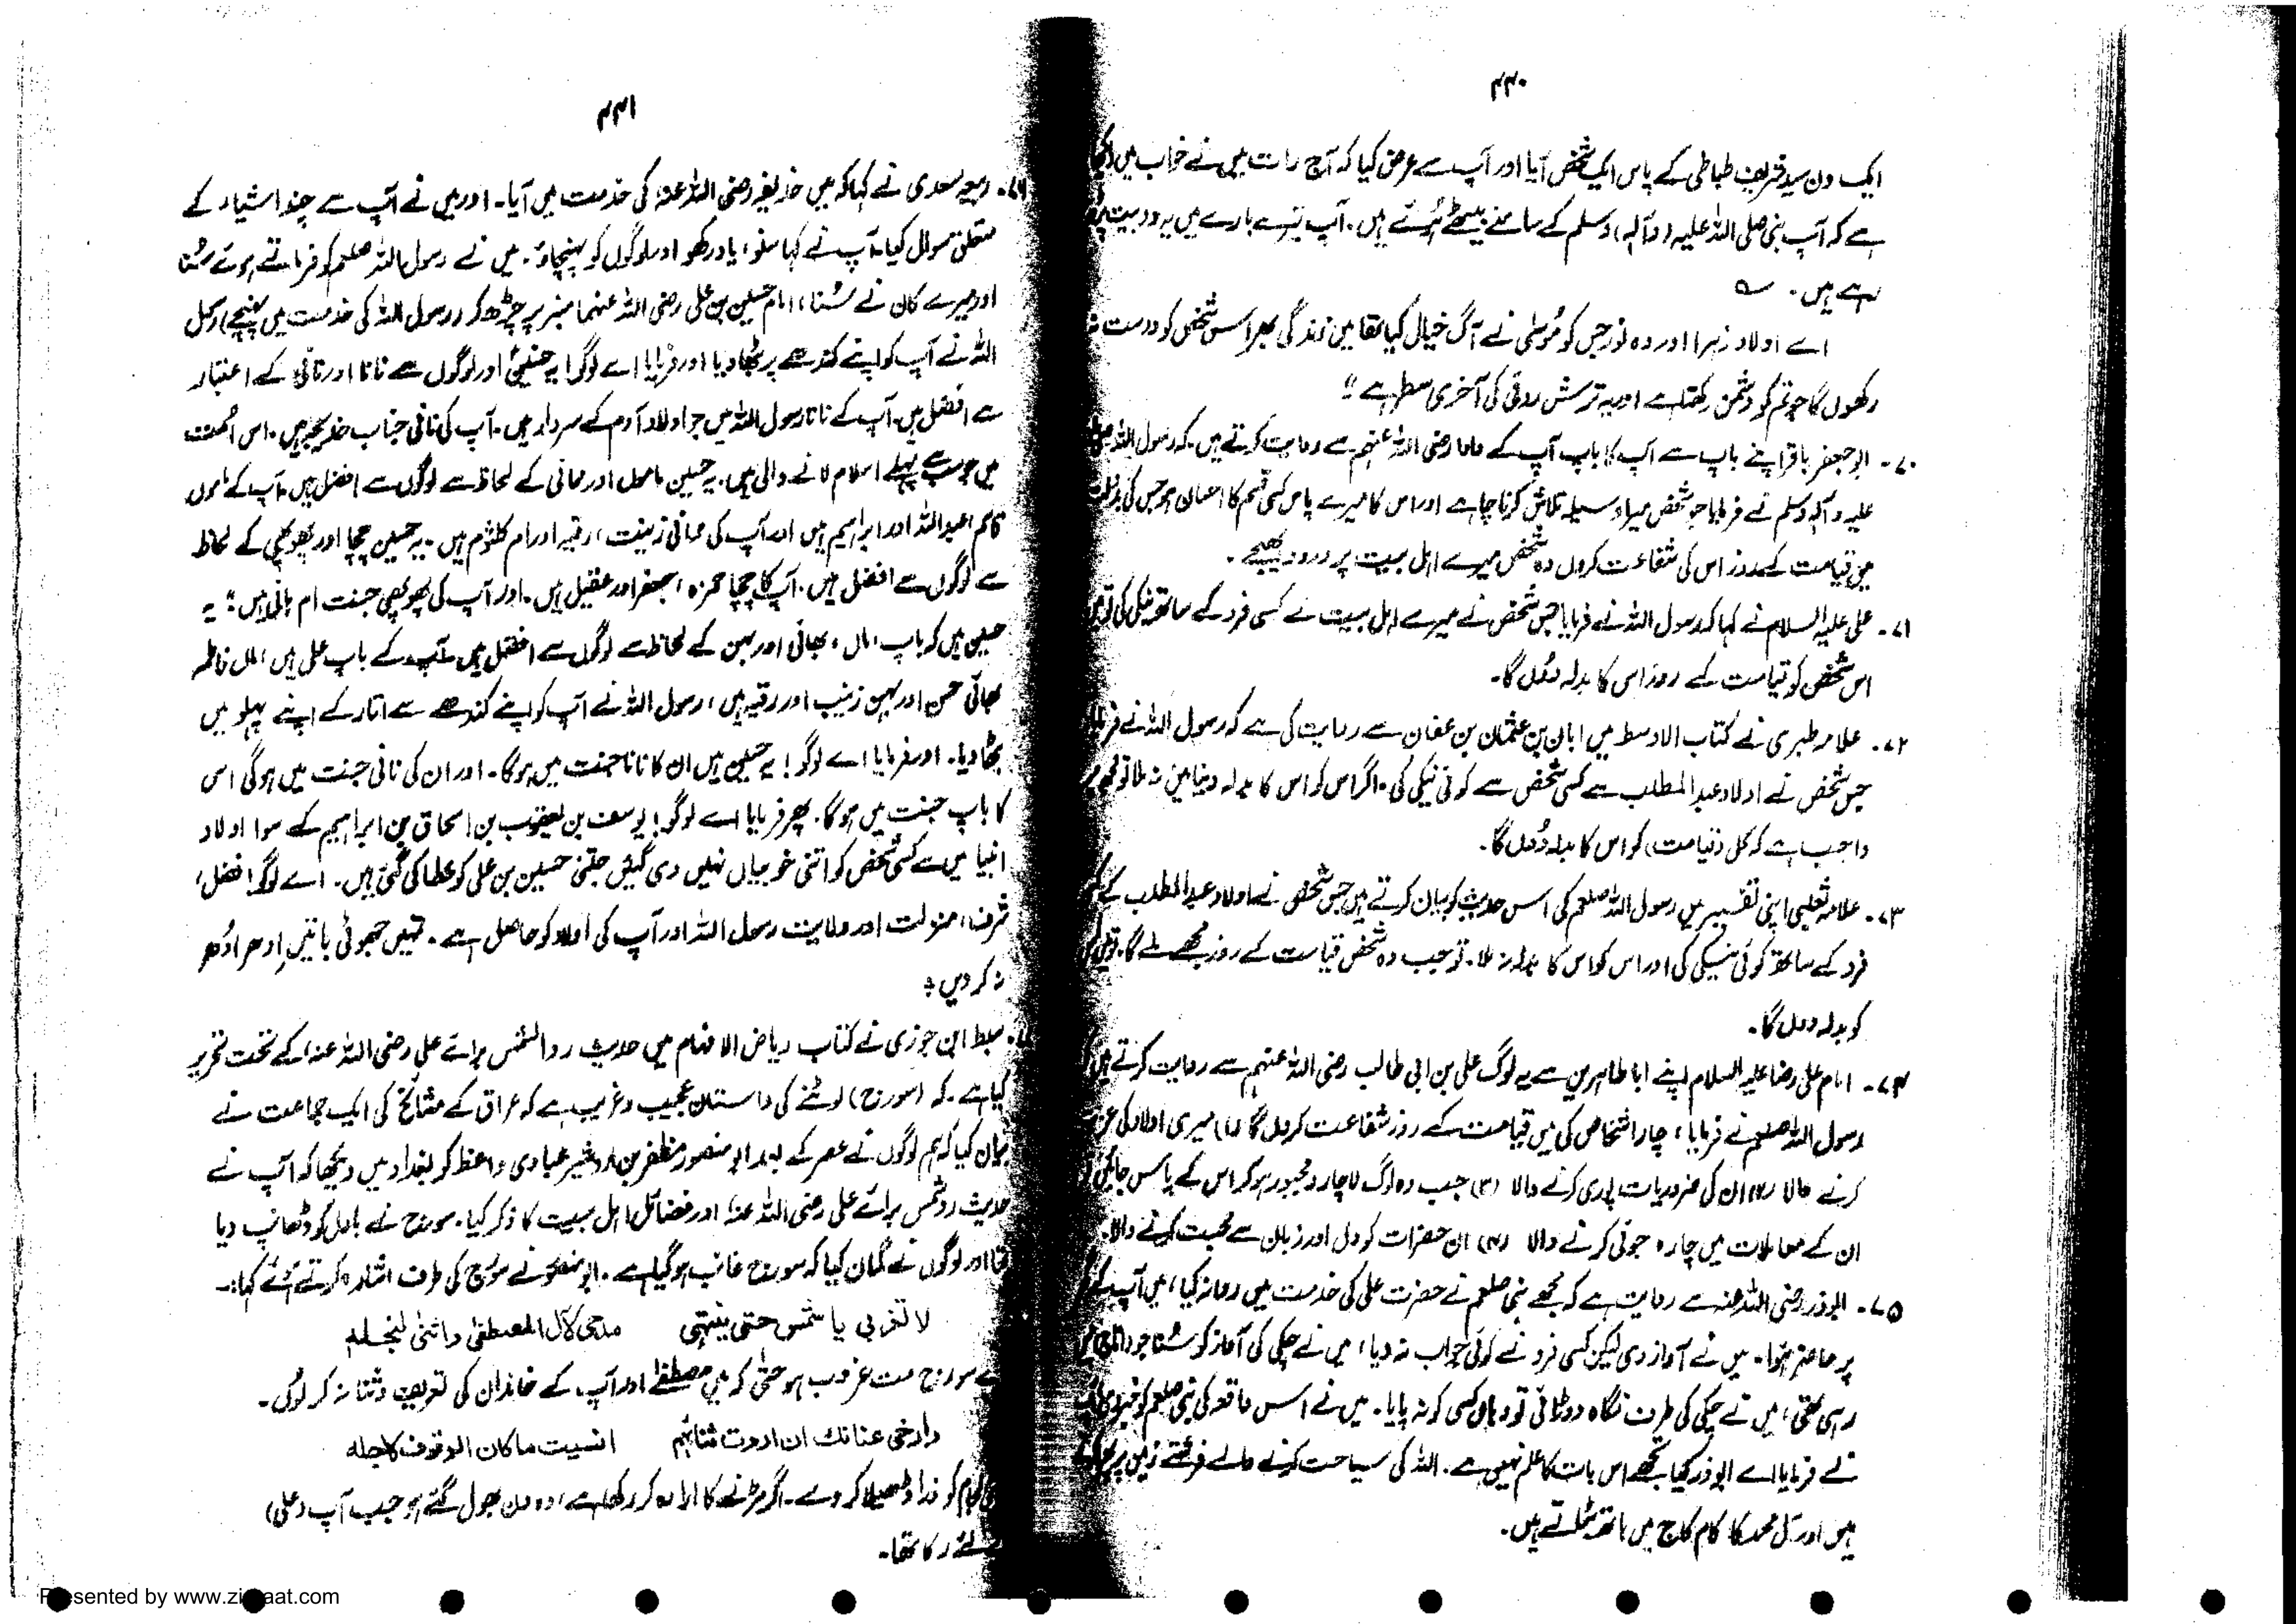 ۴۴۰
ایک دن سید شریف طباطی کے پاس ایک شخص آیا اور آپ سے عرض کیا کہ آج رات میں نے خواب میں دیکھا
ہے کہ آپ نبی صلی اللہ علیہ (وآلہ) وسلم کے سامنے بیٹھے ہوئے ہیں۔ آپ تیرے بارے میں یہ دو بیت پڑھ
رہے ہیں۔ ؎
اے اولاد زہرا اور وہ نور جس کو موسٰی نے آگ خیال کیا تھا میں زندگی بھر اس شخص کو درست نہ
رکھوں گا جو تم کو دشمن رکھتا ہے اور یہ ترش روئی کی آخری سطر ہے"
۷۰۔ ابو جعفر باقر اپنے باپ سے آپ کا باپ آپ کے دادا رضی اللہ عنہم سے روایت کرتے ہیں۔ کہ رسول اللہ صلی
علیہ وآلہٖ وسلم نے فرمایا جو شخص میرا وسیلہ تلاش کرنا چاہے اور اس کا میرے پاس کسی قسم کا احسان ہو جس کی بدولت
میں قیامت کے روز اس کی شفاعت کروں وہ شخص میرے اہل بیت پر درود بھیجے۔
۷۱۔ علی علیہ السلام نے کہا کہ رسول اللہ نے فرمایا جس شخص نے میرے اہل بیت کے کسی فرد کے ساتھ نیکی کی تو میں
اس شخص کو قیامت کے روز اس کا بدلہ دُوں گا۔
۷۲۔ علامہ طبری نے کتاب الاوسط میں ابان بن عثمان بن عفان سے روایت کی ہے کہ رسول اللہ نے فرمایا
جس شخص نے اولاد عبدالمطلب سے کسی شخص سے کوئی نیکی کی۔ اگر اس کو اس کا بدلہ دنیا میں نہ ملا تو مجھ پر
واجب ہے کہ کل (قیامت) کو اس کا بدلہ دُوں گا۔
۷۳۔ علامہ ثعلبی اپنی تفسیر میں رسول اللہ صلعم کی اس حدیث کو بیان کرتے ہیں جس شخص نے اولاد عبدالمطلب کے کسی
فرد کے ساتھ کوئی نیکی کی اور اس کو اس کا بدلہ نہ ملا۔ تو جب وہ شخص قیامت کے روز مجھے ملے گا۔ تو میں اس
کو بدلہ دوں گا۔
۷۴۔ امام علی رضا علیہ السلام اپنے ابا طاہرین سے یہ لوگ علی بن ابی طالب رضی اللہ عنہم سے روایت کرتے ہیں
رسول اللہ صلعم نے فرمایا: چار اشخاص کی میں قیامت کے روز شفاعت کروں گا (۱) میری اولاد کی عزت
کرنے والا (۲) ان کی ضروریات پوری کرنے والا (۳) جب وہ لوگ لاچار و مجبور ہو کر اس کے پاس جائیں
ان کے معاملات میں چارہ جوئی کرنے والا (۴) ان حضرات کو دل اور زبان سے محبت کرنے والا۔
۷۵۔ ابوذر رضی اللہ عنہ سے روایت ہے کہ مجھے نبی صلعم نے حضرت علی کی خدمت میں روانہ کیا، میں آپ کے
پر حاضر ہوا۔ میں نے آواز دی لیکن کسی فرد نے کوئی جواب نہ دیا، میں نے چکی کی آواز کو سُنا جو
رہی تھی، میں نے چکی کی طرف نگاہ دوڑائی تو وہاں کسی کو نہ پایا۔ میں نے اس واقعہ کی نبی صلعم کو خبر
نے فرمایا اے ابوذر کیا تجھے اس بات کا علم نہیں ہے۔ اللہ کی سیاحت کرنے والے فرشتے زمین پر
ہیں اور آل محمد کا کام کاج میں ہاتھ بٹاتے ہیں۔
۴۴۱
۷۶۔ ربیعہ سعدی نے کہا کہ میں حذیفہ رضی اللہ عنہ کی خدمت میں آیا۔ اور میں نے آپ سے چند اشیاء کے
متعلق سوال کیا۔ آپ نے کہا سنو، یاد رکھو اور لوگوں کو پہنچاؤ۔ میں نے رسول اللہ صلعم کو فرماتے ہوئے سُنا
اور میرے کان نے سُنا، امام حسین بن علی رضی اللہ عنہما منبر پر چڑھ کر (رسول اللہ کی خدمت میں پہنچے) رسول
اللہ نے آپ کو اپنے کندھے پر بٹھا دیا اور فرمایا اے لوگو! یہ حسین اور لوگوں سے نانا اور نانی کے اعتبار
سے افضل ہیں۔ آپ کے نانا رسول اللہ ہیں جو اولاد آدم کے سردار ہیں۔ آپ کی نانی جناب خدیجہ ہیں۔ اس امت
میں جو سب سے پہلے اسلام لانے والی ہیں۔ یہ حسین ماموں اور ممانی کے لحاظ سے لوگوں سے افضل ہیں۔ آپ کے ماموں
قاسم، عبداللہ اور ابراہیم ہیں اور آپ کی ممانی زینب، رقیہ اور ام کلثوم ہیں۔ یہ حسین چچا اور پھوپھی کے لحاظ
سے لوگوں سے افضل ہیں۔ آپ کا چچا حمزہ، جعفر اور عقیل ہیں۔ اور آپ کی پھوپھی جنت ام ہانی ہیں: یہ
حسین ہیں کہ باپ، ماں، بھائی اور بہن کے لحاظ سے لوگوں سے افضل ہیں آپ کے باپ علی ہیں، ماں فاطمہ
بھائی حسن اور بہن زینب اور رقیہ ہیں، رسول اللہ نے آپ کو اپنے کندھے سے اتار کے اپنے پہلو میں
بٹھا دیا۔ اور فرمایا اے لوگو! یہ حسین ہیں ان کا نانا جنت میں ہوگا۔ اور ان کی نانی جنت میں ہوگی اس
کا باپ جنت میں ہوگا۔ پھر فرمایا اے لوگو! یوسف بن یعقوب بن اسحاق بن ابراہیم کے سوا اولاد
انبیا میں سے کسی شخص کو اتنی خوبیاں نہیں دی گئیں جتنی حسین بن علی کو عطا کی گئی ہیں۔ اے لوگو! فضل،
شرف، منزلت اور ولایت رسول اللہ اور آپ کی اولاد کو حاصل ہے۔ تمہیں جھوٹی باتیں اِدھر اُدھر
نہ کر دیں؛
سبط ابن جوزی نے کتاب ریاض الافہام میں حدیث رد الشمس برائے علی رضی اللہ عنہ کے تحت تحریر
کیا ہے۔ کہ (سورج) لوٹنے کی داستان عجیب و غریب ہے کہ عراق کے مشائخ کی ایک جماعت نے
بیان کیا کہ ہم لوگوں نے عصر کے بعد ابو منصور مظفر بن اردشیر عبادی واعظ کو بغداد میں دیکھا کہ آپ نے
حدیث رد شمس برائے علی رضی اللہ عنہ اور فضائل اہل بیت کا ذکر کیا۔ سورج نے بادل کو ڈھانپ دیا
تھا اور لوگوں نے گمان کیا کہ سورج غائب ہو گیا ہے۔ ابو منصور نے سورج کی طرف اشارہ کرتے ہوئے کہا:۔
لا تغربی یا شمس حتی ینتہی مدحی لآل المصطفیٰ واثنی لنجلہ
سورج مت غروب ہو حتیٰ کہ میں مصطفےٰ اور آپ کے خاندان کی تعریف و ثنا نہ کر لُوں۔
وارخی عنانک ان اردت ثنائہم انسیت ماکان الوقوف لاجلہ
لگام کو ذرا ڈھیلا کر دے۔ اگر مڑنے کا ارادہ کر رکھا ہے، وہ دن بھول گئے ہو جب آپ (علی)
لئے رکا تھا۔
Presented by www.ziaraat.com